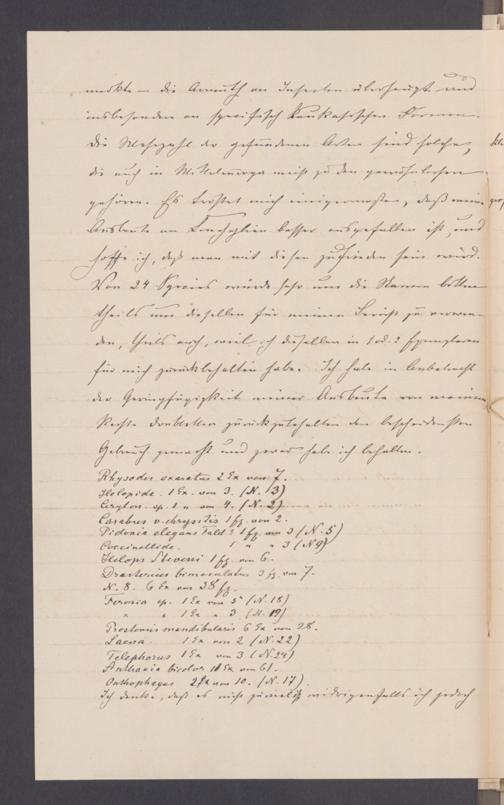 merkte – die Armuth an Insecten überhaupt und
insbesondere an specifisch Kaukasischen Formen.
Die Mehrzahl der gefundenen Arten sind solche,
die auch in M. Kolmirga meist zu den gewöhnlichsten
gehören. Es tröstet mich einigermassen, daß meine
Ausbeute an Conchylien besser ausgefallen ist, und
hoffe ich, daß man mit diesen zufrieden sein wird.
Von 24 Species würde sehr um die Namen bitten
theils um dieselben für meinen Bericht zu verwen-
den, theils auch, weil ich dieselben in 1 od. 2 Exemplaren
für mich zurückbehalten habe. Ich habe in Anbetracht
der Geringfügigkeit meiner Ausbeute von meinem
Rechte Doubletten zurückzubehalten den bescheidensten
Gebrauch gemacht und zwar habe ich behalten.
Rhysodes exaratus 2 Ex von 7.
Holopide. 1 Ex. von 3. (N. 13)
Cerylon. sp. 1 " von 4. (N. 2)
Carabus v. chrysitis 1 Ex. von 2.
Pidonia elegans Fald? 1 Ex. von 3 (N. 5)
Coccinellide. 1 " " 3 (N 9)
Helops Steveni 1 Ex. von 6.
Drasterius bimaculatus 3 Ex. von 7.
N. 8. 6 Ex von 38 Ex.
Feronia sp. 1 Ex von 5 (N. 18)
" " 1 Ex " 3 (N. 19)
Prostomis mandibularis 6 Ex von 28.
Laena 1 Ex. von 2 (N. 22)
Telephorus 1 Ex von 3 (N. 24)
Anthaxia bicolor 10 Ex von 61.
Onthophagus 2 Ex von 10. (N. 17).
Ich denke, daß es nicht zuviel ist widrigenfalls ich jedoch